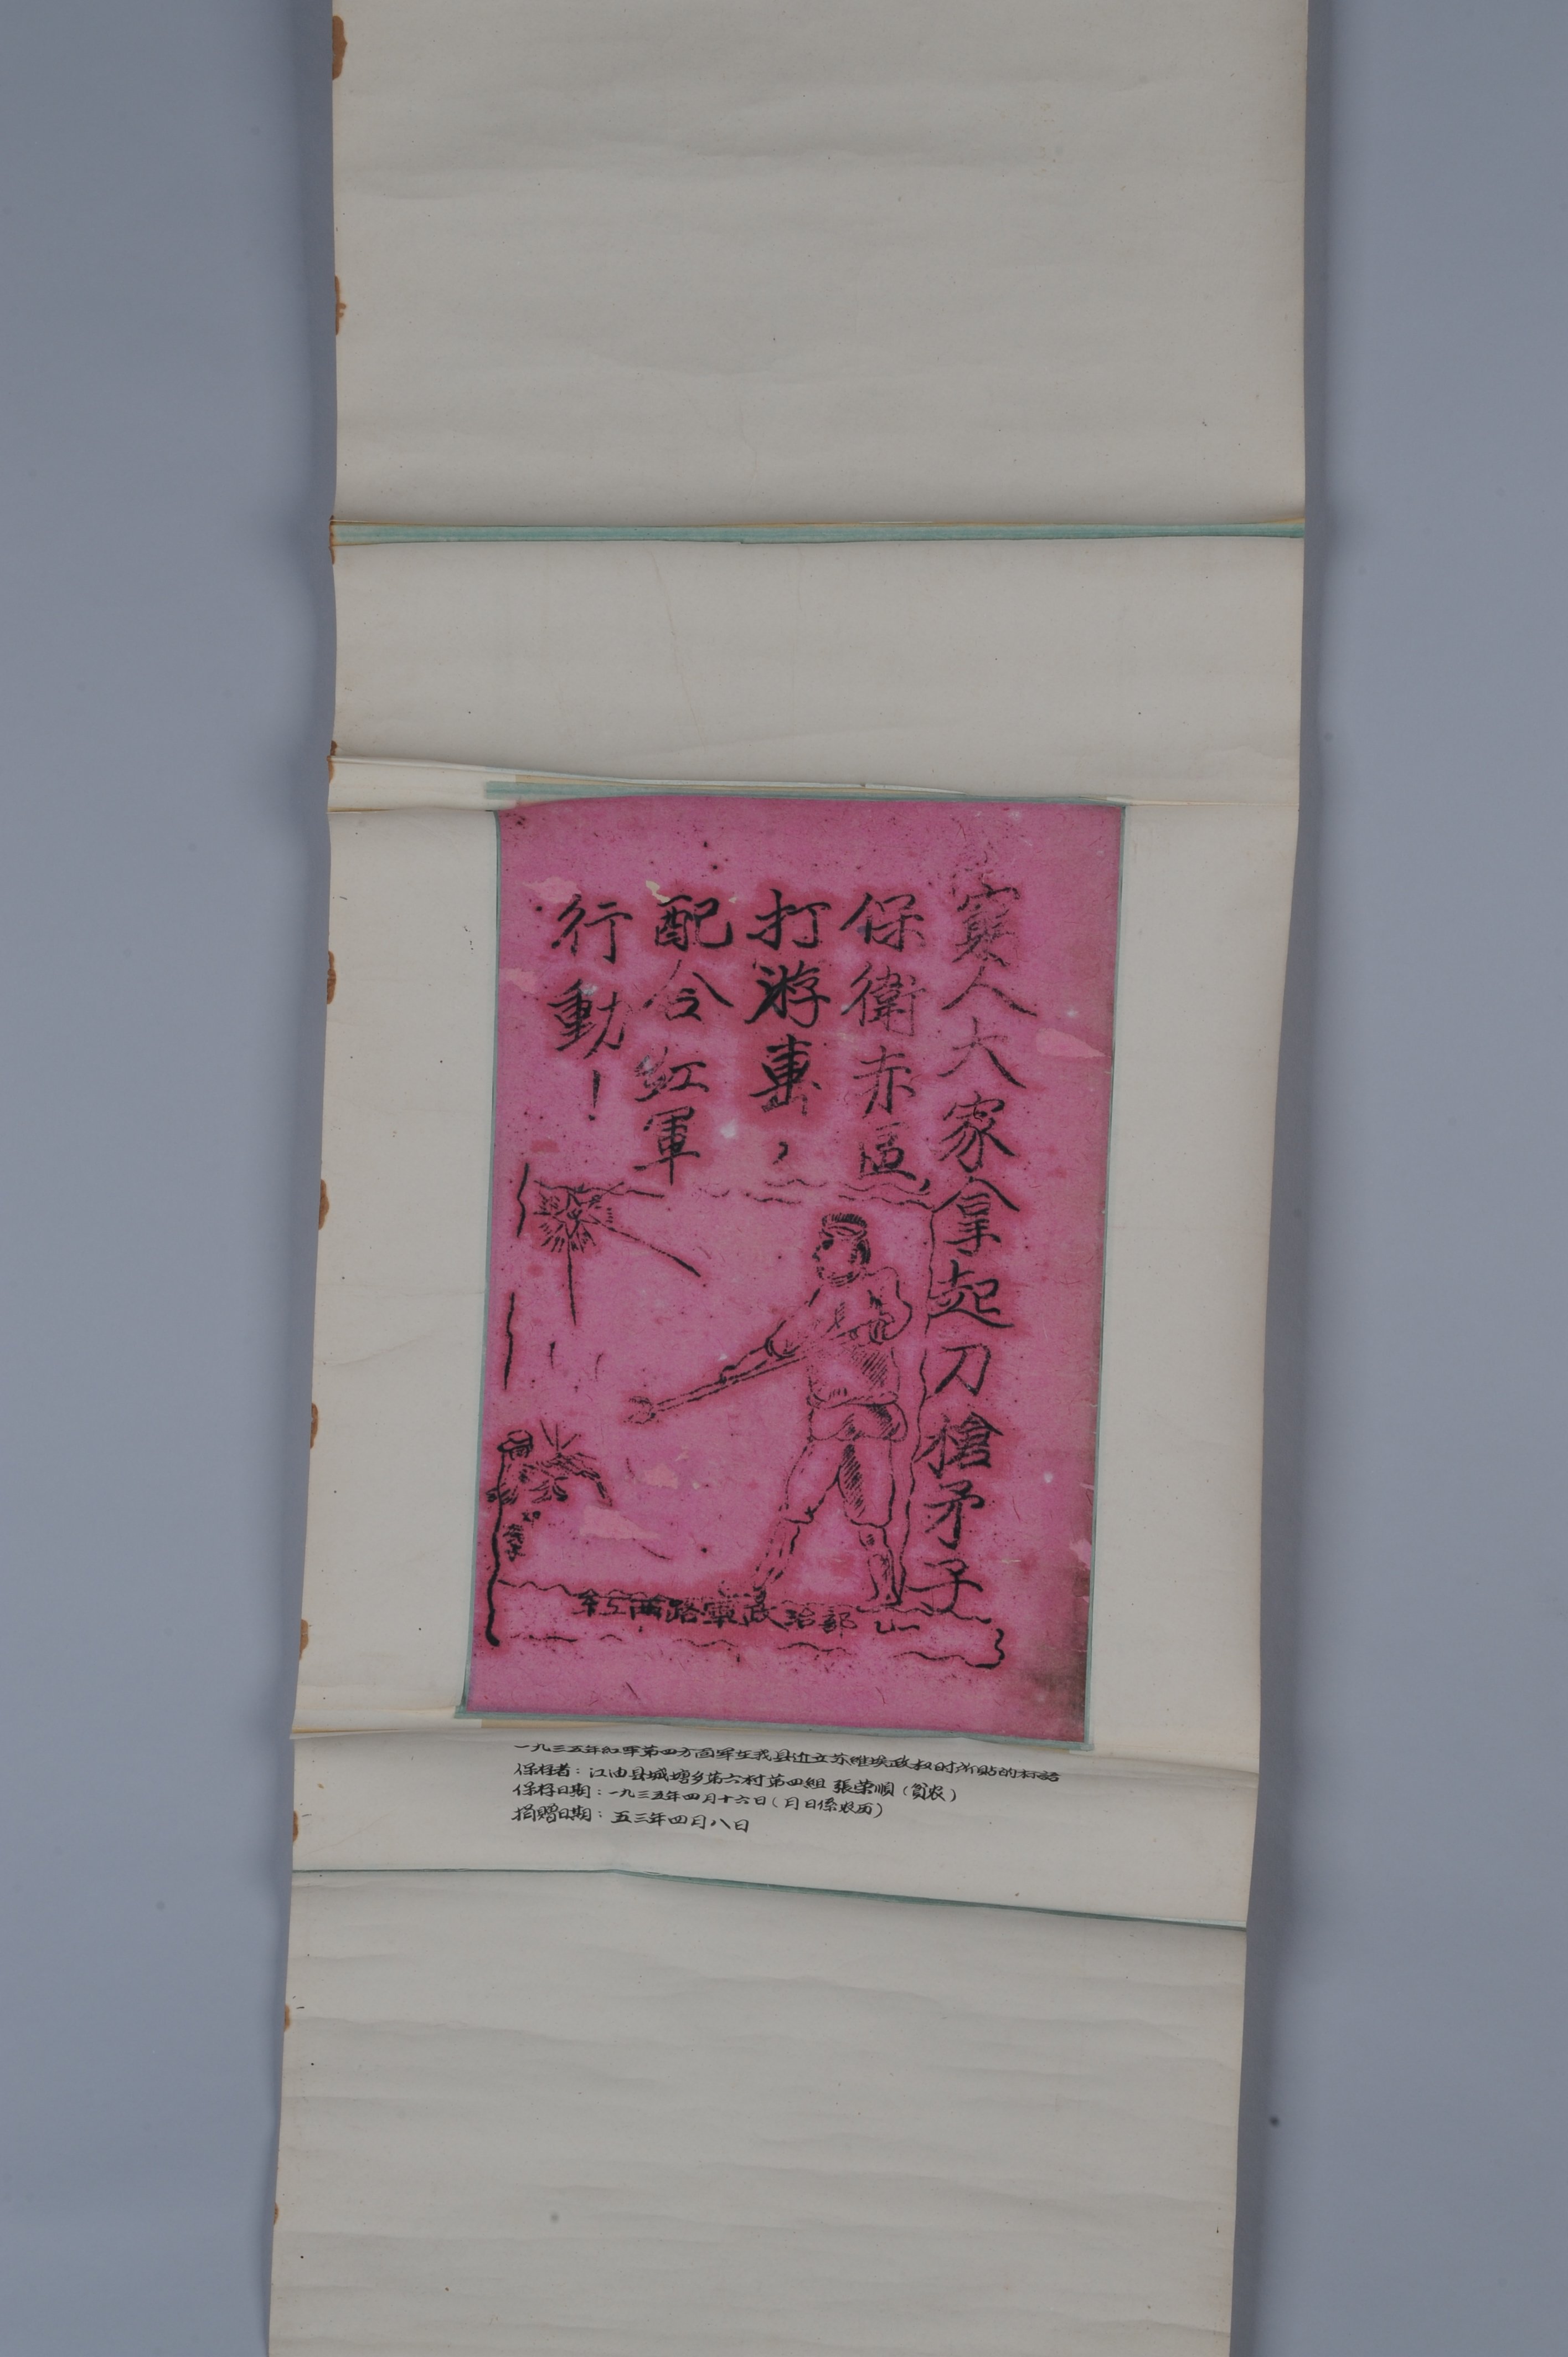 窮人大家拿起刀槍矛子
保衛赤區，
打游擊，
配合紅軍
行動！
紅西路軍政治部
一九三五年红军第四方面军在我县建立苏维埃政权时所贴的标語
保存者：江油县城塘乡第六村第四組 張榮順（贫农）
保存日期：一九三五年四月十六日（月日係农历）
捐赠日期：五三年四月八日